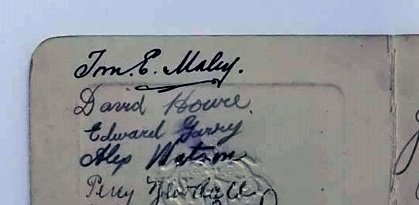 Tom. E. Maley.
David Howie.
Edward Garry
Alex Watson
Percy